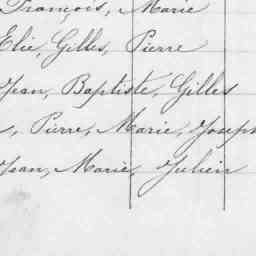 François, Marie
Elie, Gilles, Pierre
Jean, Baptiste, Gilles
, Pierre, Marie, Joseph
Jean, Marie, Julien